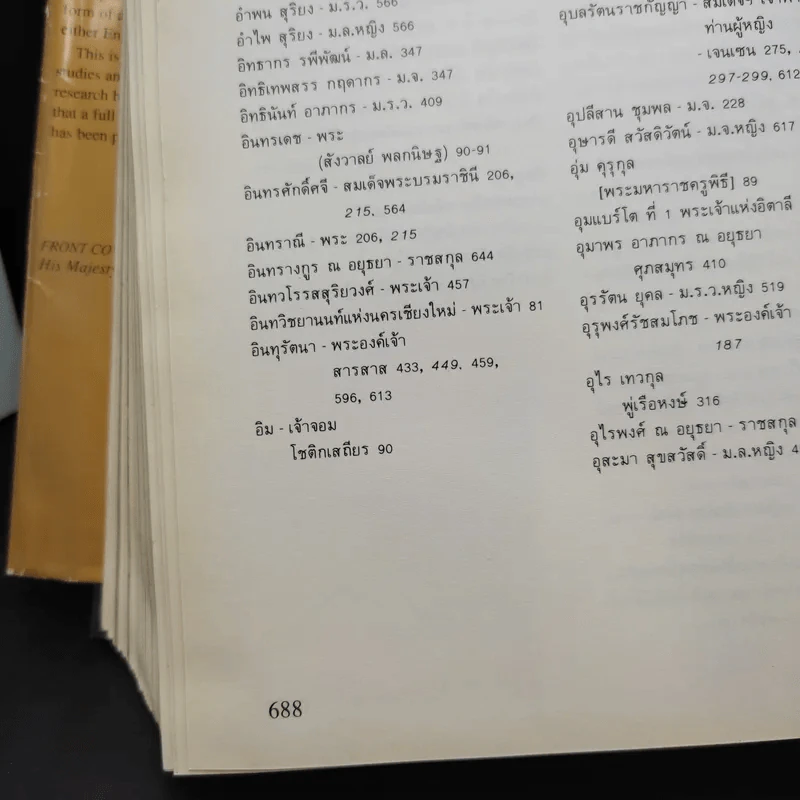 form of a
either En
This is
studies an
research b
that a full
has been p
FRONT CO
His Majesty
อำพน สุริยง - ม.ร.ว. 566
อำไพ สุริยง - ม.ล.หญิง 566
อิทธากร รพีพัฒน์ - ม.ล. 347
อิทธิเทพสรร กฤดากร - ม.จ. 347
อิทธินันท์ อาภากร - ม.ร.ว. 409
อินทรเดช - พระ
(สังวาลย์ พลกนิษฐ) 90-91
อินทรศักดิ์ศจี - สมเด็จพระบรมราชินี 206,
215, 564
อินทราณี - พระ 206, 215
อินทรางกูร ณ อยุธยา - ราชสกุล 644
อินทวโรรสสุริยวงศ์ - พระเจ้า 457
อินทวิชยานนท์แห่งนครเชียงใหม่ - พระเจ้า 81
อินทุรัตนา - พระองค์เจ้า
สารสาส 433, 449, 459,
596, 613
อิม - เจ้าจอม
โชติกเสถียร 90
อุบลรัตนราชกัญญา - สมเด็จฯ
ท่านผู้หญิง
- เจนเซน 275,
297-299, 612
อุปลีสาน ชุมพล - ม.จ. 228
อุษารดี สวัสดิวัตน์ - ม.จ.หญิง 617
อุ่ม คุรุกุล
[พระมหาราชครูพิธี] 89
อุมแบร์โต ที่ 1 พระเจ้าแห่งอิตาลี
อุมาพร อาภากร ณ อยุธยา
ศุภสมุทร 410
อุรรัตน ยุคล - ม.ร.ว.หญิง 519
อุรุพงศ์รัชสมโภช - พระองค์เจ้า
187
อุไร เทวกุล
พู่เรือหงษ์ 316
อุไรพงศ์ ณ อยุธยา - ราชสกุล
อุสะมา สุขสวัสดิ์ - ม.ล.หญิง 4
688